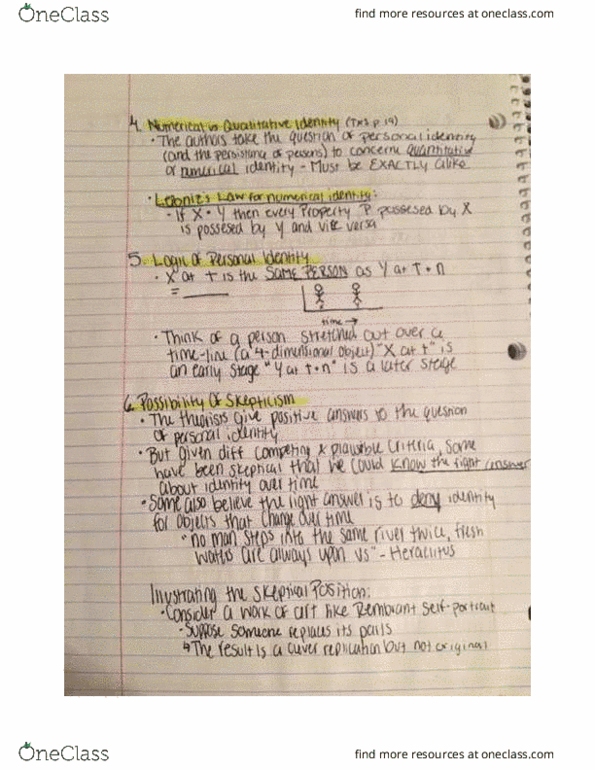 OneClass
find more resources at oneclass.com
4. Numerical vs Qualitative Identity (TKS p. 19)
• The authors take the question of personal identity
(and the persistance of persons) to concern quantitative
or numerical identity - Must be EXACTLY alike
• Lebonie's Law for numerical identity:
- If X = Y then every Property P possesed by X
is possesed by Y and vice versa
5. Logic of Personal Identity
• X at t is the SAME PERSON as Y at T+n
= ____
time →
• Think of a person stretched out over a
time-line (a 4-dimensional object) "X at t" is
an early stage "Y at t+n" is a later stage
6. Possibility Of Skepticism
• The theorists give positive answers to the question
of personal identity
• But given diff competing & plausible criteria, some
have been skeptical that we could know the right answer
about identity over time
• Some also believe the right answer is to deny identity
for objects that change over time
"no man steps into the same river twice, fresh
waters are always upon us" - Heraclitus
Illustrating the Skeptical Position:
• Consider a work of art like Rembrant Self-portrait
- Suppose someone replaces its parts
↳ The result is a clever replication but not original
OneClass
find more resources at oneclass.com